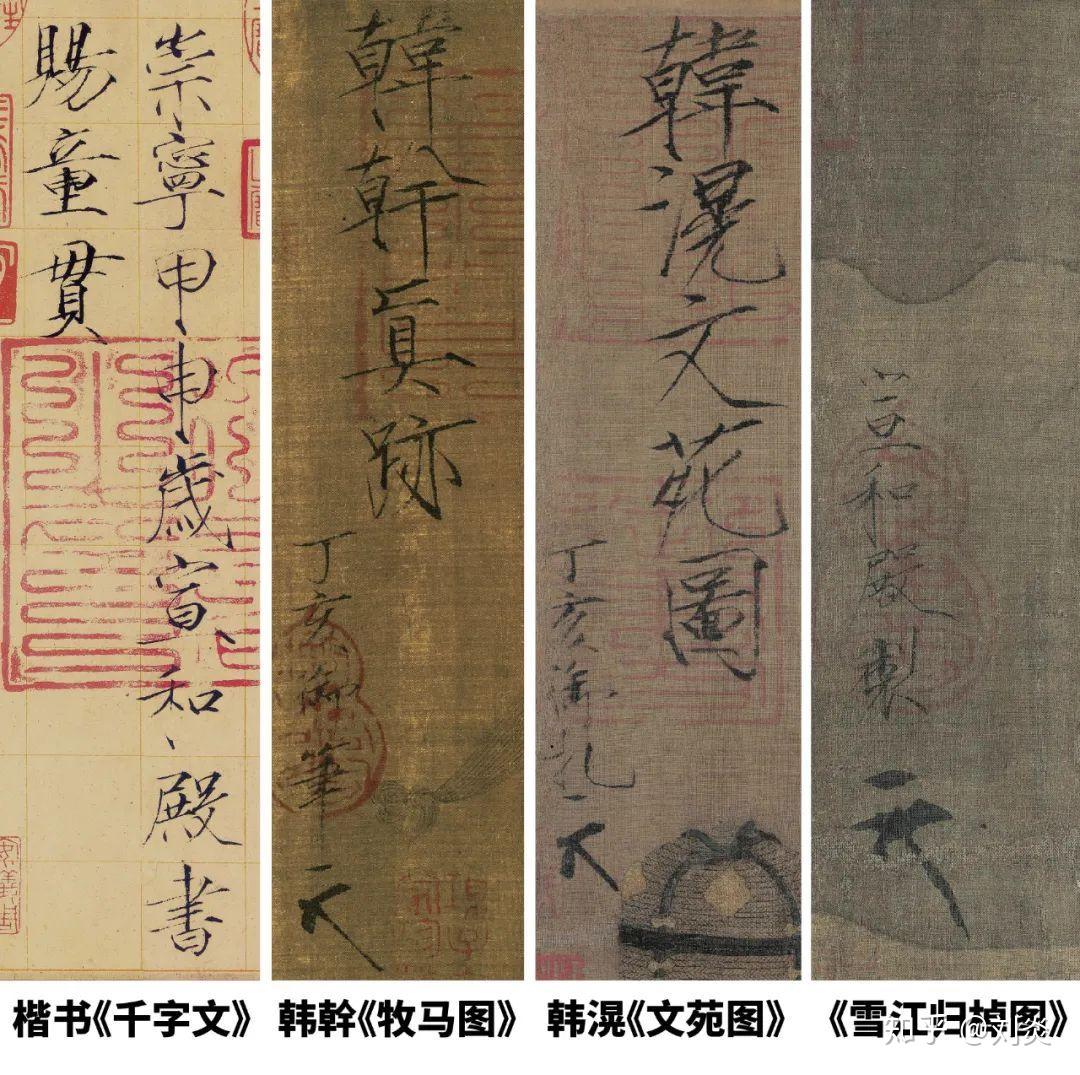 崇寧甲申歲宣和殿書
賜童貫
韓幹眞跡
丁亥御筆
韓滉文苑圖
丁亥御札
宣和殿製
楷书《千字文》
韩幹《牧马图》
韩滉《文苑图》
《雪江归棹图》
知乎